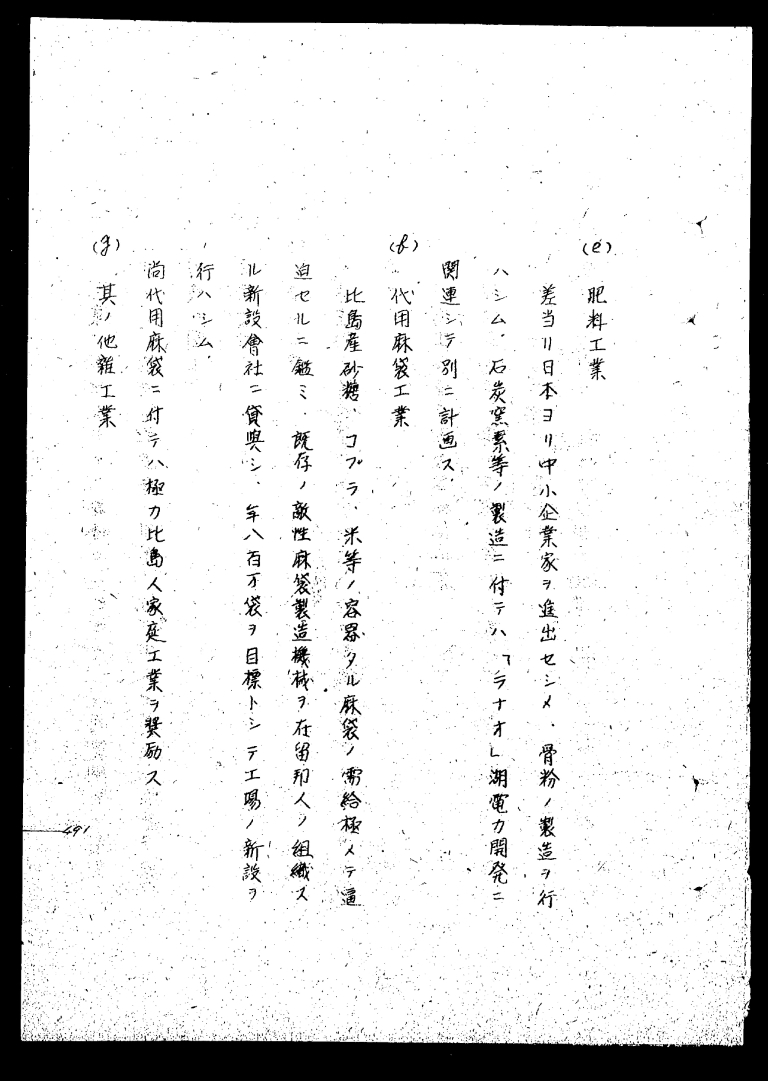 (e) 肥料工業
差当リ日本ヨリ中小企業家ヲ進出セシメ、骨粉ノ製造ヲ行
ハシム、石炭窒素等ノ製造ニ付テハ「ラナオ」湖電力開発ニ
関連シテ別ニ計画ス、
(f) 代用麻袋工業
比島産砂糖、コプラ、米等ノ容器タル麻袋ノ需給極メテ逼
迫セルニ鑑ミ、既存ノ敵性麻袋製造機械ヲ在留邦人ノ組織ス
ル新設會社ニ貸與シ、年八百万袋ヲ目標トシテ工場ノ新設ヲ
行ハシム、
尚代用麻袋ニ付テハ極力比島人家庭工業ヲ奨励ス、
(g) 其ノ他雑工業
491